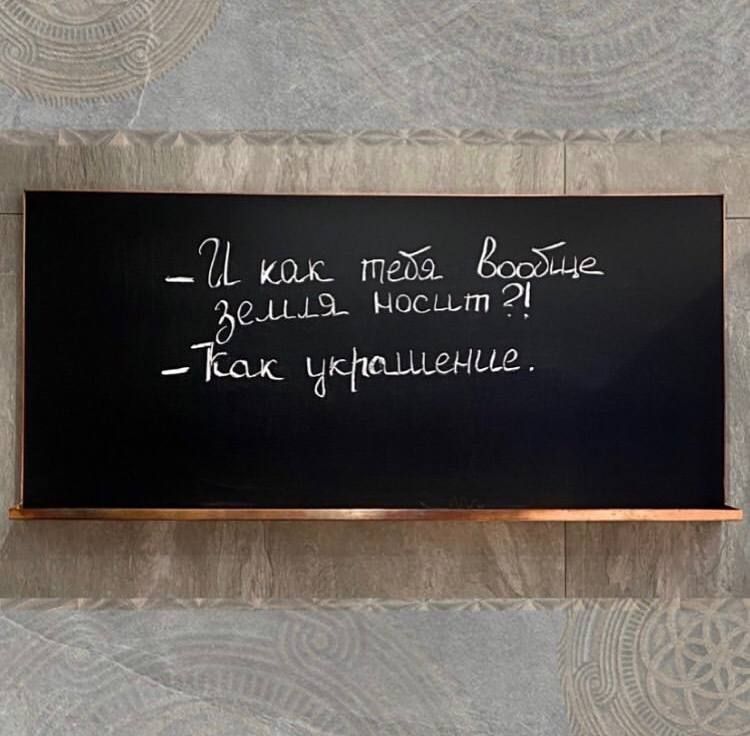 - И как тебя вообще
земля носит?!
- Как украшение.